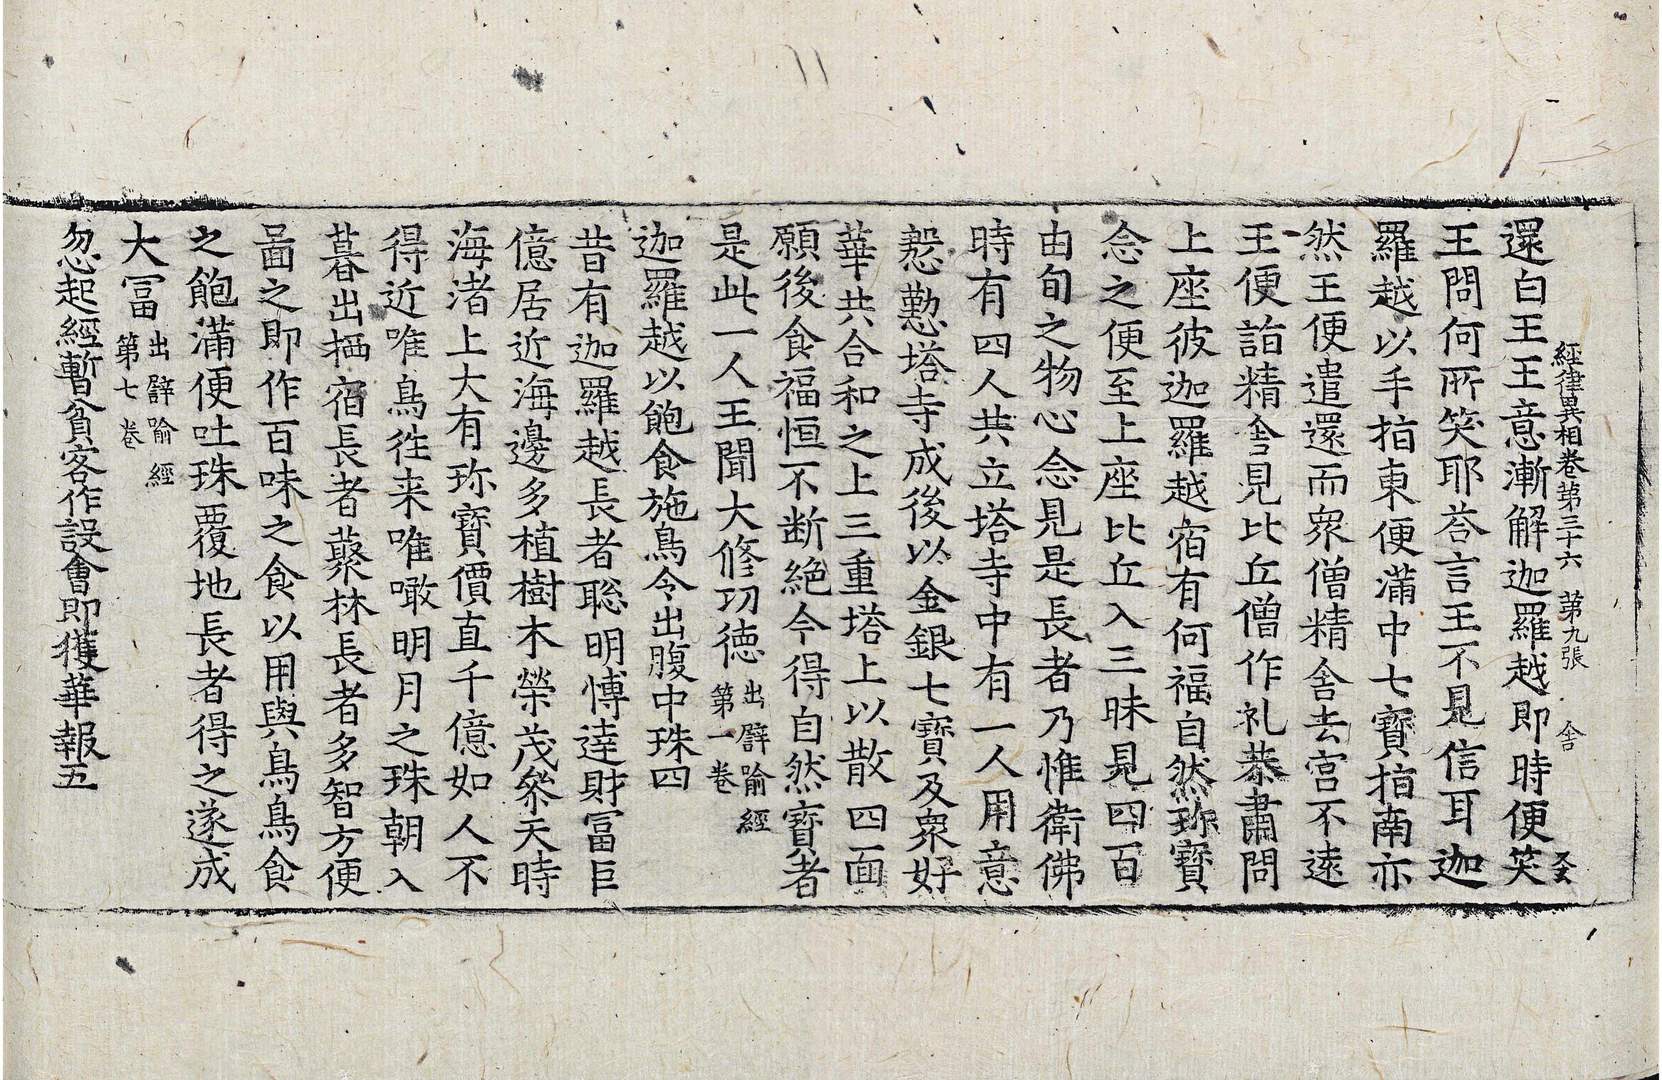 經律異相卷第三十六 第九張 舍
還白王王意漸解迦羅越即時便笑
王問何所笑耶荅言王不見信耳迦
羅越以手指東便滿中七寶指南亦
然王便遣還而衆僧精舍去宫不遠
王便詣精舍見比丘僧作礼恭肅問
上座彼迦羅越宿有何福自然珎寶
念之便至上座比丘入三昧見四百
由旬之物心念見是長者乃惟衛佛
時有四人共立塔寺中有一人用意
慇懃塔寺成後以金銀七寶及衆好
華共合和之上三重塔上以散四面
願後食福恒不断絶今得自然寶者
是此一人王聞大修功德出譬喻經第一卷
迦羅越以飽食施鳥令出腹中珠四
昔有迦羅越長者聡明博達財冨巨
億居近海邊多植樹木榮茂叅天時
海渚上大有珎寶價直千億如人不
得近唯鳥徃来唯噉明月之珠朝入
暮出栖宿長者藂林長者多智方便
啚之即作百味之食以用與鳥鳥食
之飽滿便吐珠覆地長者得之遂成
大冨出譬喻經第七卷
忽起經暫貧客作設會即獲華報五